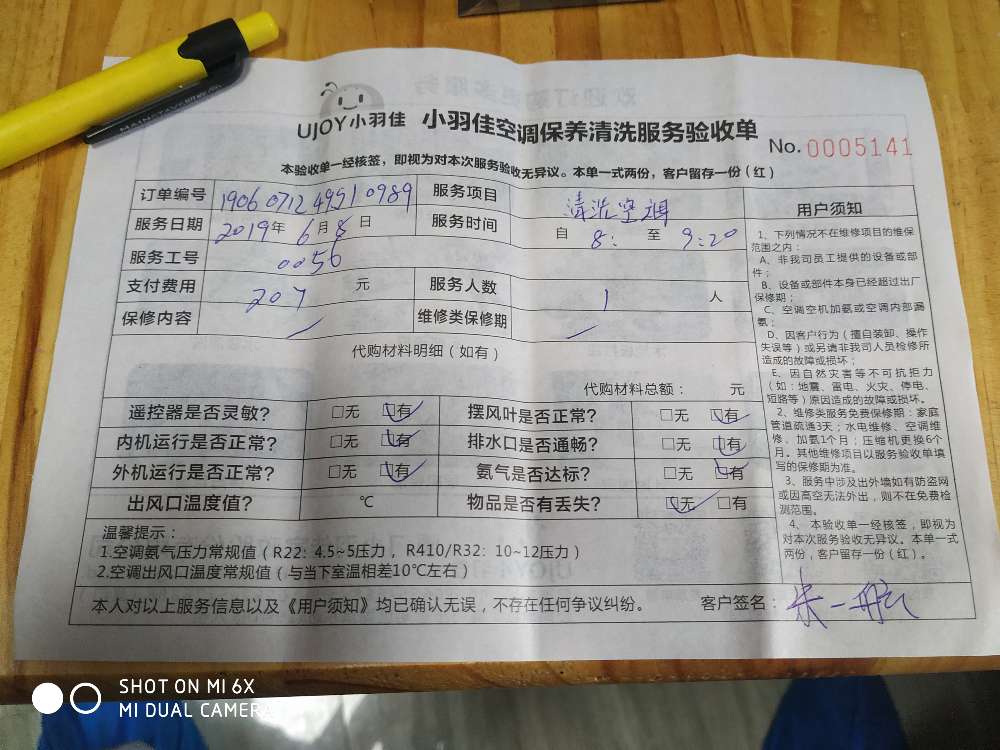 UJOY小羽佳 小羽佳空调保养清洗服务验收单
No. 0005141
本验收单一经核签，即视为对本次服务验收无异议。本单一式两份，客户留存一份（红）
订单编号 1906071249510989 服务项目 清洗空调
服务日期 2019年6月8日 服务时间 自 8: 至 9:20
服务工号 0056
支付费用 207 元 服务人数 1 人
保修内容 / 维修类保修期 /
代购材料明细（如有）
代购材料总额： 元
遥控器是否灵敏? □无 □有 摆风叶是否正常? □无 □有
内机运行是否正常? □无 □有 排水口是否通畅? □无 □有
外机运行是否正常? □无 □有 氨气是否达标? □无 □有
出风口温度值? ℃ 物品是否有丢失? □无 □有
温馨提示：
1.空调氨气压力常规值（R22: 4.5~5压力，R410/R32: 10~12压力）
2.空调出风口温度常规值（与当下室温相差10℃左右）
本人对以上服务信息以及《用户须知》均已确认无误，不存在任何争议纠纷。 客户签名： 朱一航
用户须知
1、下列情况不在维修项目的维保
范围之内：
A、非我司员工提供的设备或部
件；
B、设备或部件本身已经超过出厂
保修期；
C、空调空机加氨或空调内部漏
氨；
D、因客户行为（擅自装卸、操作
失误等）或另请非我司人员检修所
造成的故障或损坏；
E、因自然灾害等不可抗拒力
（如：地震、雷电、火灾、停电、
短路等）原因造成的故障或损坏。
2、维修类服务免费保修期：家庭
管道疏通3天；水电维修、空调维
修、加氨1个月；压缩机更换6个
月。其他维修项目以服务验收单填
写的保修期为准。
3、服务中涉及出外墙如有防盗网
或因高空无法外出，则不在免费检
测范围。
4、本验收单一经核签，即视为
对本次服务验收无异议。本单一式
两份，客户留存一份（红）。
SHOT ON MI 6X
MI DUAL CAMERA